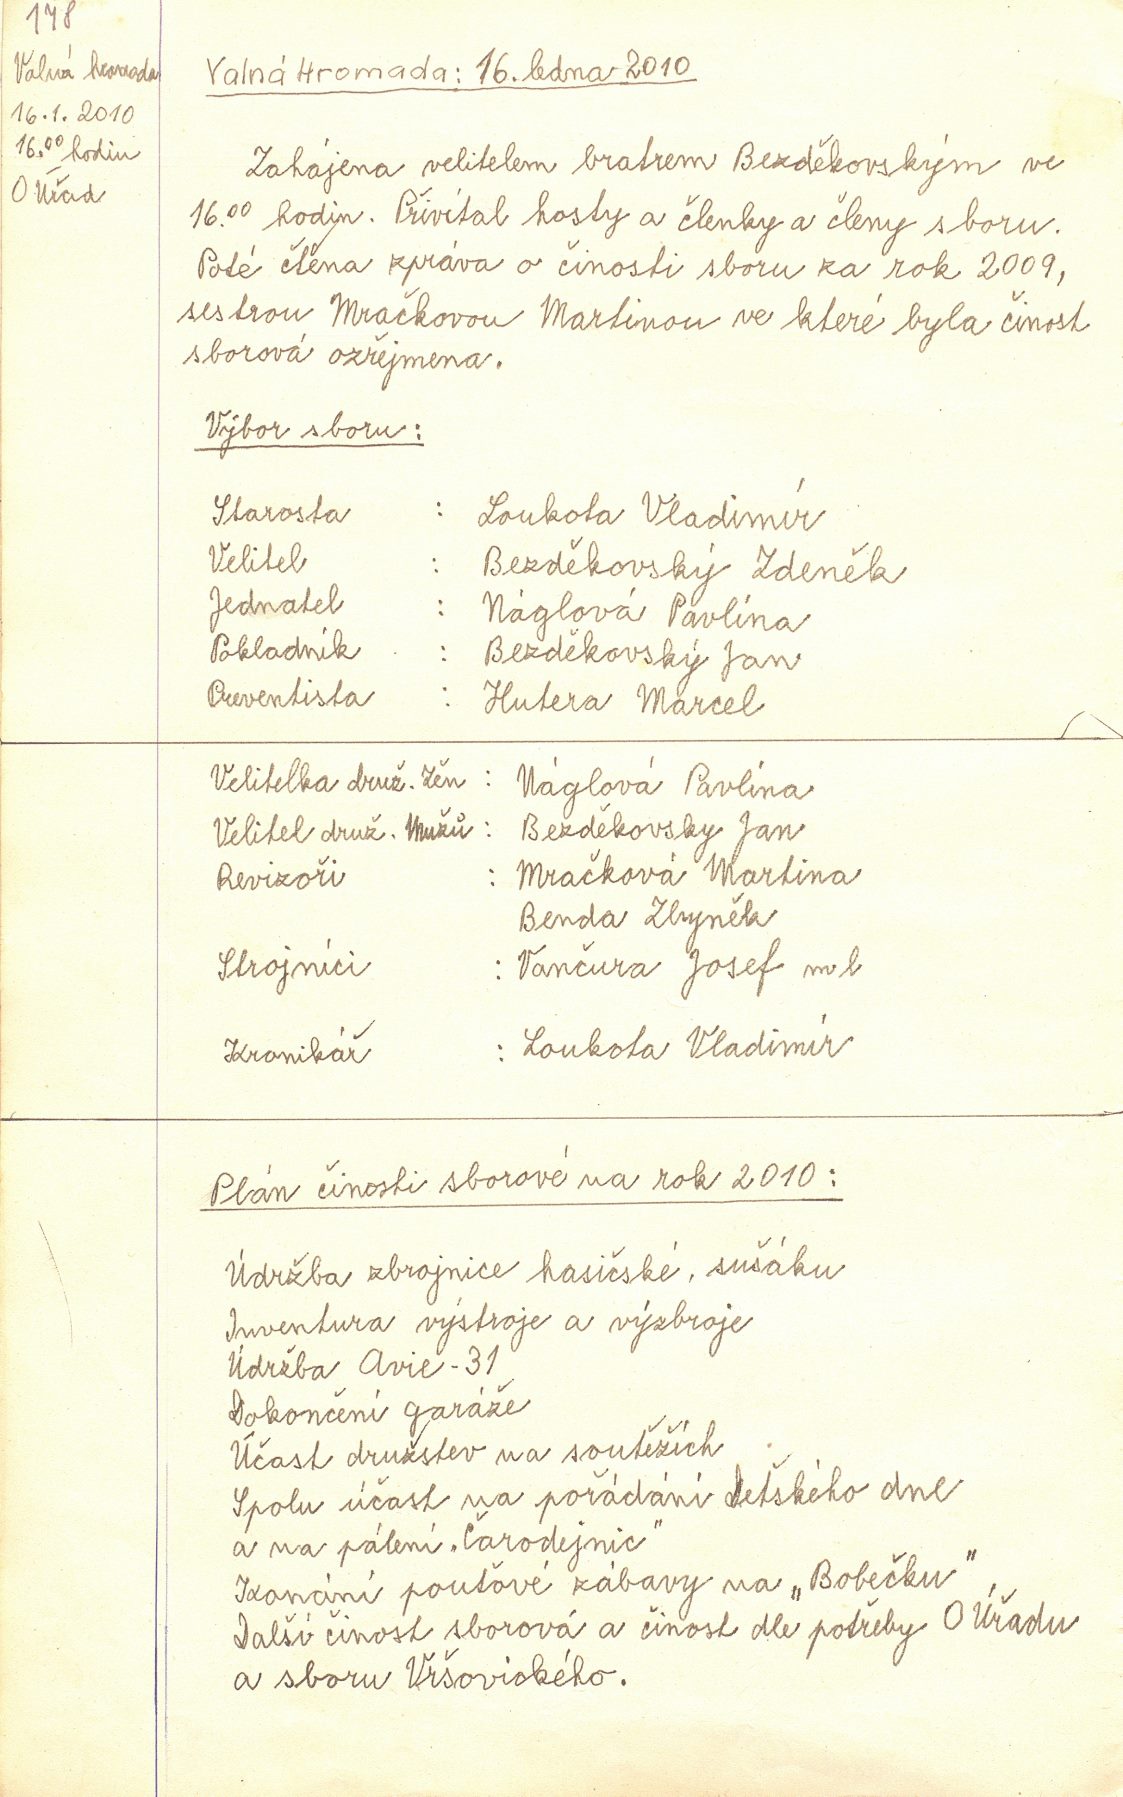 178
Valná hromada
16.1. 2010
16.00 hodin
O Úřad
Valná Hromada: 16. ledna 2010
Zahájena velitelem bratrem Bezděkovským ve
16.00 hodin. Přivítal hosty a členky a členy sboru.
Poté čtěna zpráva o činosti sboru za rok 2009,
sestrou Mračkovou Martinou ve které byla činost
sborová ozřejmena.
Výbor sboru:
Starosta : Loukota Vladimír
Velitel : Bezděkovský Zdeněk
Jednatel : Náglová Pavlína
Pokladník : Bezděkovský Jan
Preventista : Hutera Marcel
Velitelka druž. Žěn : Náglová Pavlína
Velitel druž. Mužů : Bezděkovsky Jan
Revizoři : Mračková Martina
Benda Zbyněk
Strojníci : Vančura Josef ml
Kronikář : Loukota Vladimír
Plán činosti sborové na rok 2010:
Údržba zbrojnice hasičské, sušáku
Inventura výstroje a výzbroje
Údržba Avie-31
Dokončení garáže
Účast družstev na soutěžích
Spolu účast na pořádání Detského dne
a na pálení „Čarodejnic"
Konání pouťové zábavy na „Bobečku"
Další činost sborová a činost dle potřeby O Úřadu
a sboru Vršovického.